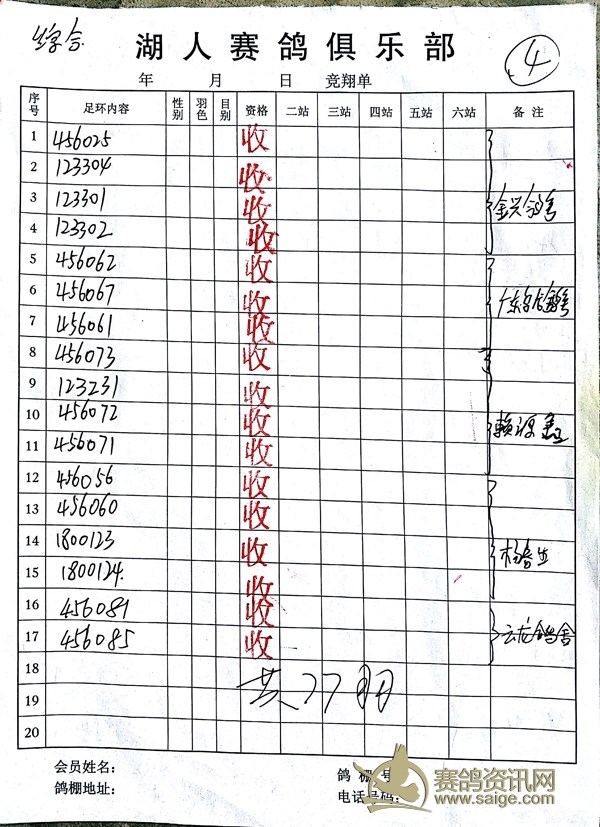 综合
湖人赛鸽俱乐部
4
年 月 日 竞翔单
序号 足环内容 性别 羽色 目别 资格 二站 三站 四站 五站 六站 备注
1 456025 收
2 123304 收
3 123301 收 金兴鸽舍
4 123302 收
5 456062 收
6 456067 收
7 456061 收
8 456073 收
9 123231 收
10 456072 收
11 456071 收
12 456056 收
13 456060 收
14 1800123 收
15 1800124. 收
16 456081 收
17 456085 收 云龙鸽舍
18
19 共17羽
20
会员姓名: 鸽棚号
鸽棚地址: 电话号码:
赛鸽资讯网
www.saige.com